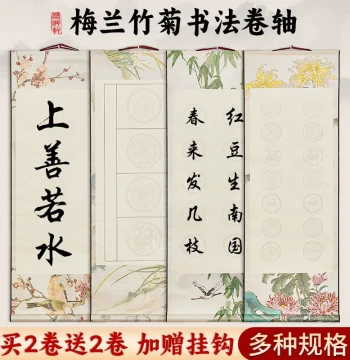 梅兰竹菊书法卷轴
上善若水
红豆生南国
春来发几枝
买2卷送2卷 加赠挂钩
多种规格